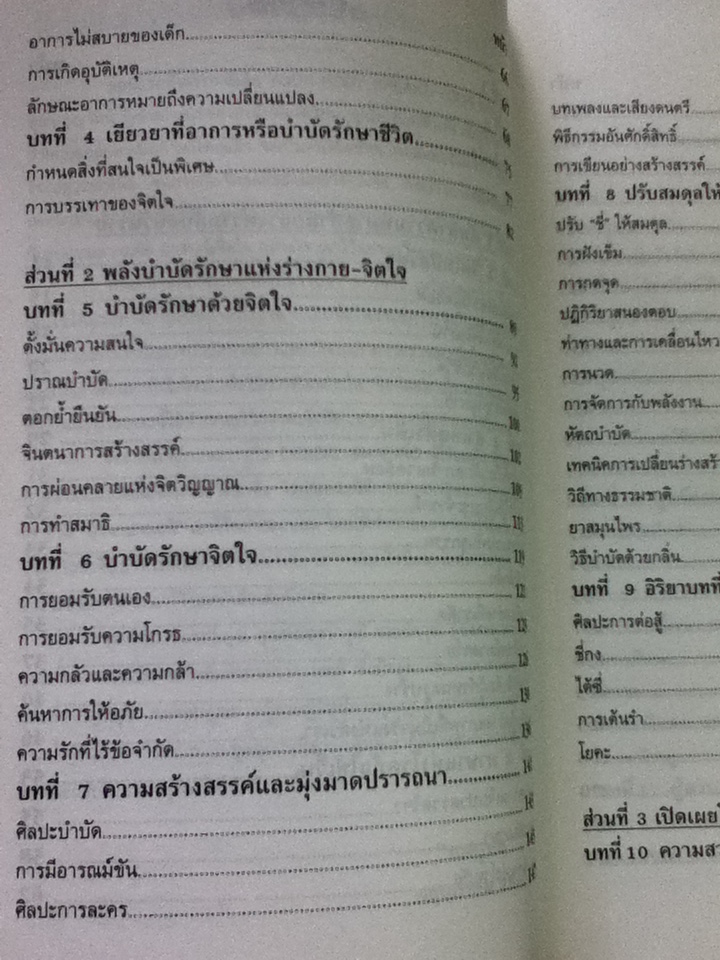 หน้า
อาการไม่สบายของเด็ก
การเกิดอุบัติเหตุ
ลักษณะอาการหมายถึงความเปลี่ยนแปลง
บทที่ 4 เยียวยาที่อาการหรือบำบัดรักษาชีวิต
กำหนดสิ่งที่สนใจเป็นพิเศษ
การบรรเทาของจิตใจ
ส่วนที่ 2 พลังบำบัดรักษาแห่งร่างกาย-จิตใจ
บทที่ 5 บำบัดรักษาด้วยจิตใจ
ตั้งมั่นความสนใจ
ปราณบำบัด
ตอกย้ำยืนยัน
จินตนาการสร้างสรรค์
การผ่อนคลายแห่งจิตวิญญาณ
การทำสมาธิ
บทที่ 6 บำบัดรักษาจิตใจ
การยอมรับตนเอง
การยอมรับความโกรธ
ความกลัวและความกล้า
ค้นหาการให้อภัย
ความรักที่ไร้ข้อจำกัด
บทที่ 7 ความสร้างสรรค์และมุ่งมาดปรารถนา
ศิลปะบำบัด
การมีอารณม์ขัน
ศิลปะการละคร
บทเพลงและเสียงดนตรี
พิธีกรรมอันศักดิ์สิทธิ์
การเขียนอย่างสร้างสรรค์
บทที่ 8 ปรับสมดุลให้
ปรับ "ชี่" ให้สมดุล
การฝังเข็ม
การกดจุด
ปฏิกิริยาสนองตอบ
ท่าทางและการเคลื่อนไหว
การนวด
การจัดการกับพลังงาน
หัตถบำบัด
เทคนิคการเปลี่ยนร่างสร้า
วิถีทางธรรมชาติ
ยาสมุนไพร
วิธีบำบัดด้วยกลิ่น
บทที่ 9 อิริยาบทที่
ศิลปะการต่อสู้
ชี่กง
ไต้ชี่
การเต้นรำ
โยคะ
ส่วนที่ 3 เปิดเผย
บทที่ 10 ความสา